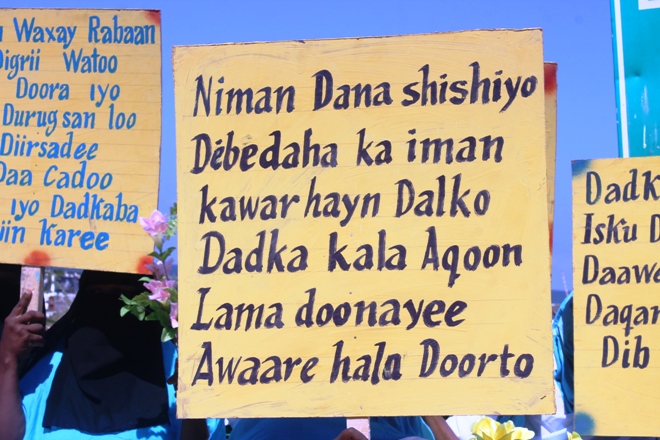 Waxay Rabaan
Digrii Watoo
Doora iyo
Durugsan loo
Diirsadee
Daa Cadoo
iyo Dadkaba
Karee
Niman Dana shishiyo
Debedaha ka iman
kawarhayn Dalko
Dadka kala Aqoon
Lama doonayee
Awaare hala Doorto
Isku
Dib